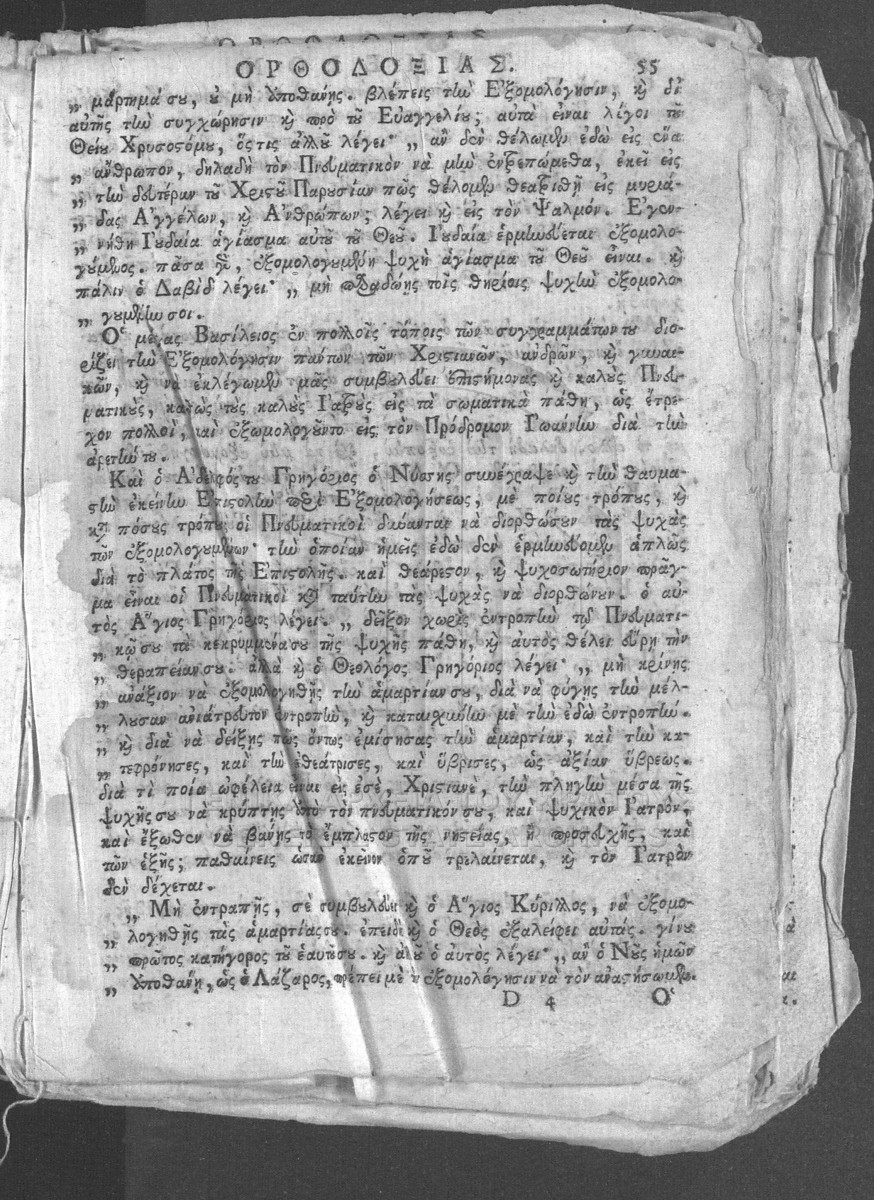 ΟΡΘΟΔΟΞΙΑΣ. 55
„ μάρτημάσου, ὁ μὴ ὑποθάνῃς. βλέπεις τὼ Ἐξομολόγησιν, καὶ δι'
αὐτῆς τὼ συγχώρησιν καὶ πρὸ τοῦ Εὐαγγελίου; αὐτὰ εἶναι λίγοι τοῦ
Θείου Χρυσοστόμου, ὅστις ἀλλοῦ λέγει· „ ἂν δὲν θέλωμεν ἐδὼ εἰς ἕνα
„ ἄνθρωπον, δηλαδὴ τὸν Πνευματικὸν νὰ μὼ ἐντρεπώμεθα, ἐκεῖ εἰς
„ τὼ δευτέραν τοῦ Χριστοῦ Παρουσίαν πῶς θέλομεν θεατριθῆ εἰς μυριά-
„ δας Ἀγγέλων, καὶ Ἀνθρώπων; λέγει καὶ εἰς τὸν Ψαλμόν. Ἐγεν-
„ νήθη Ἰουδαία ἁγίασμα αὐτοῦ τοῦ Θεοῦ. Ἰουδαία ἑρμηνεύεται ἐξομολο-
γούμενος. πᾶσα οὖν, ἐξομολογουμένη ψυχὴ ἁγίασμα τοῦ Θεοῦ εἶναι. καὶ
πάλιν ὁ Δαβὶδ λέγει· „ μὴ παραδώῃς τοῖς θηρίοις ψυχὼ ἐξομολο-
„ γουμένω σοι.
Ὁ μέγας Βασίλειος ἐν πολλοῖς τόποις τῶν συγγραμμάτωντου διο-
ρίζει τὼ Ἐξομολόγησιν πάντων τῶν Χριστιανῶν, ἀνδρῶν, καὶ γυναι-
κῶν, καὶ νὰ ἐκλέγωμεν μᾶς συμβουλεύει ἐπιστήμονας καὶ καλοὺς Πνευ-
ματικοὺς, καθὼς τοὺς καλοὺς Ἰατροὺς εἰς τὰ σωματικὰ πάθη, ὡς ἔτρε-
χον πολλοὶ, καὶ ἐξωμολογοῦντο εἰς τὸν Πρόδρομον Ἰωάννω διὰ τὼ
ἀρετώτου.
Καὶ ὁ Ἀδελφόςτου Γρηγόριος ὁ Νύσσης συνέγραψε καὶ τὼ θαυμα-
στὼ ἐκείνω Ἐπιστολὼ περὶ Ἐξομολογήσεως, μὲ ποίους τρόπους, καὶ
κατὰ πόσους τρόπους οἱ Πνευματικοὶ δύνανται νὰ διορθώσουν τὰς ψυχὰς
τῶν ἐξομολογουμένων· τὼ ὁποίαν ἡμεῖς ἐδὼ δὲν ἑρμηνεύομεν ἁπλῶς
διὰ τὸ πλάτος τῆς Ἐπιστολῆς. καὶ θεάρεστον, καὶ ψυχοσωτήριον πρᾶγ-
μα εἶναι οἱ Πνευματικοὶ κατὰ ταύτω τὰς ψυχὰς νὰ διορθώνουν. ὁ αὐ-
τὸς Ἅγιος Γρηγόριος λέγει. „ δεῖξον χωρὶς ἐντροπὼ τῷ Πνευματι-
„ κῷσου τὰ κεκρυμμένασου τῆς ψυχῆς πάθη, καὶ αὐτὸς θέλει εὕρη τὴν
„ θεραπείανσου. ἀλλὰ καὶ ὁ Θεολόγος Γρηγόριος λέγει· „ μὴ κρίνῃς
„ ἀνάξιον νὰ ἐξομολογηθῇς τὼ ἁμαρτίανσου, διὰ νὰ φύγῃς τὼ μέλ-
„ λουσαν ἀνιάτρευτον ἐντροπὼ, καὶ καταισχύνω μὲ τὼ ἐδὼ ἐντροπώ.
„ καὶ διὰ νὰ δείξῃς πῶς ὄντως ἐμίσησας τὼ ἁμαρτίαν, καὶ τὼ κα-
„ τεφρόνησες, καὶ τὼ ἐθεάτρισες, καὶ ὕβρισες, ὡς ἀξίαν ὕβρεως.
διὰ τὶ ποία ὠφέλεια εἶναι εἰς ἐσὲ, Χριστιανὲ, τὼ πληγὼ μέσα τῆς
ψυχῆςσου νὰ κρύπτῃς ἀπὸ τὸν πνευματικόνσου, καὶ ψυχικὸν Ἰατρὸν,
καὶ ἔξωθεν νὰ βάνῃς τὸ ἔμπλαστον τῆς νηστείας, ἢ προσευχῆς, καὶ
τῶν ἑξῆς; παθαίνεις ὡσὰν ἐκεῖνον ὁποῦ τρελαίνεται, καὶ τὸν Ἰατρὸν
δὲν δέχεται.
„ Μὴ ἐντραπῇς, σὲ συμβουλεύει καὶ ὁ Ἅγιος Κύριλλος, νὰ ἐξομο-
„ λογηθῇς τὰς ἁμαρτίαςσου. ἐπειδὴ καὶ ὁ Θεὸς ἐξαλείφει αὐτάς. γίνου
„ πρῶτος κατήγορος τοῦ ἑαυτοῦσου. καὶ ἀλλοῦ ὁ αὐτὸς λέγει· „ ἂν ὁ Νοῦς ἡμῶν
„ ὑποθάνῃ, ὡς ὁ Λάζαρος, πρέπει μὲ ἐξομολόγησιν νὰ τὸν ἀναστήσωμεν.
D 4 Ὁ